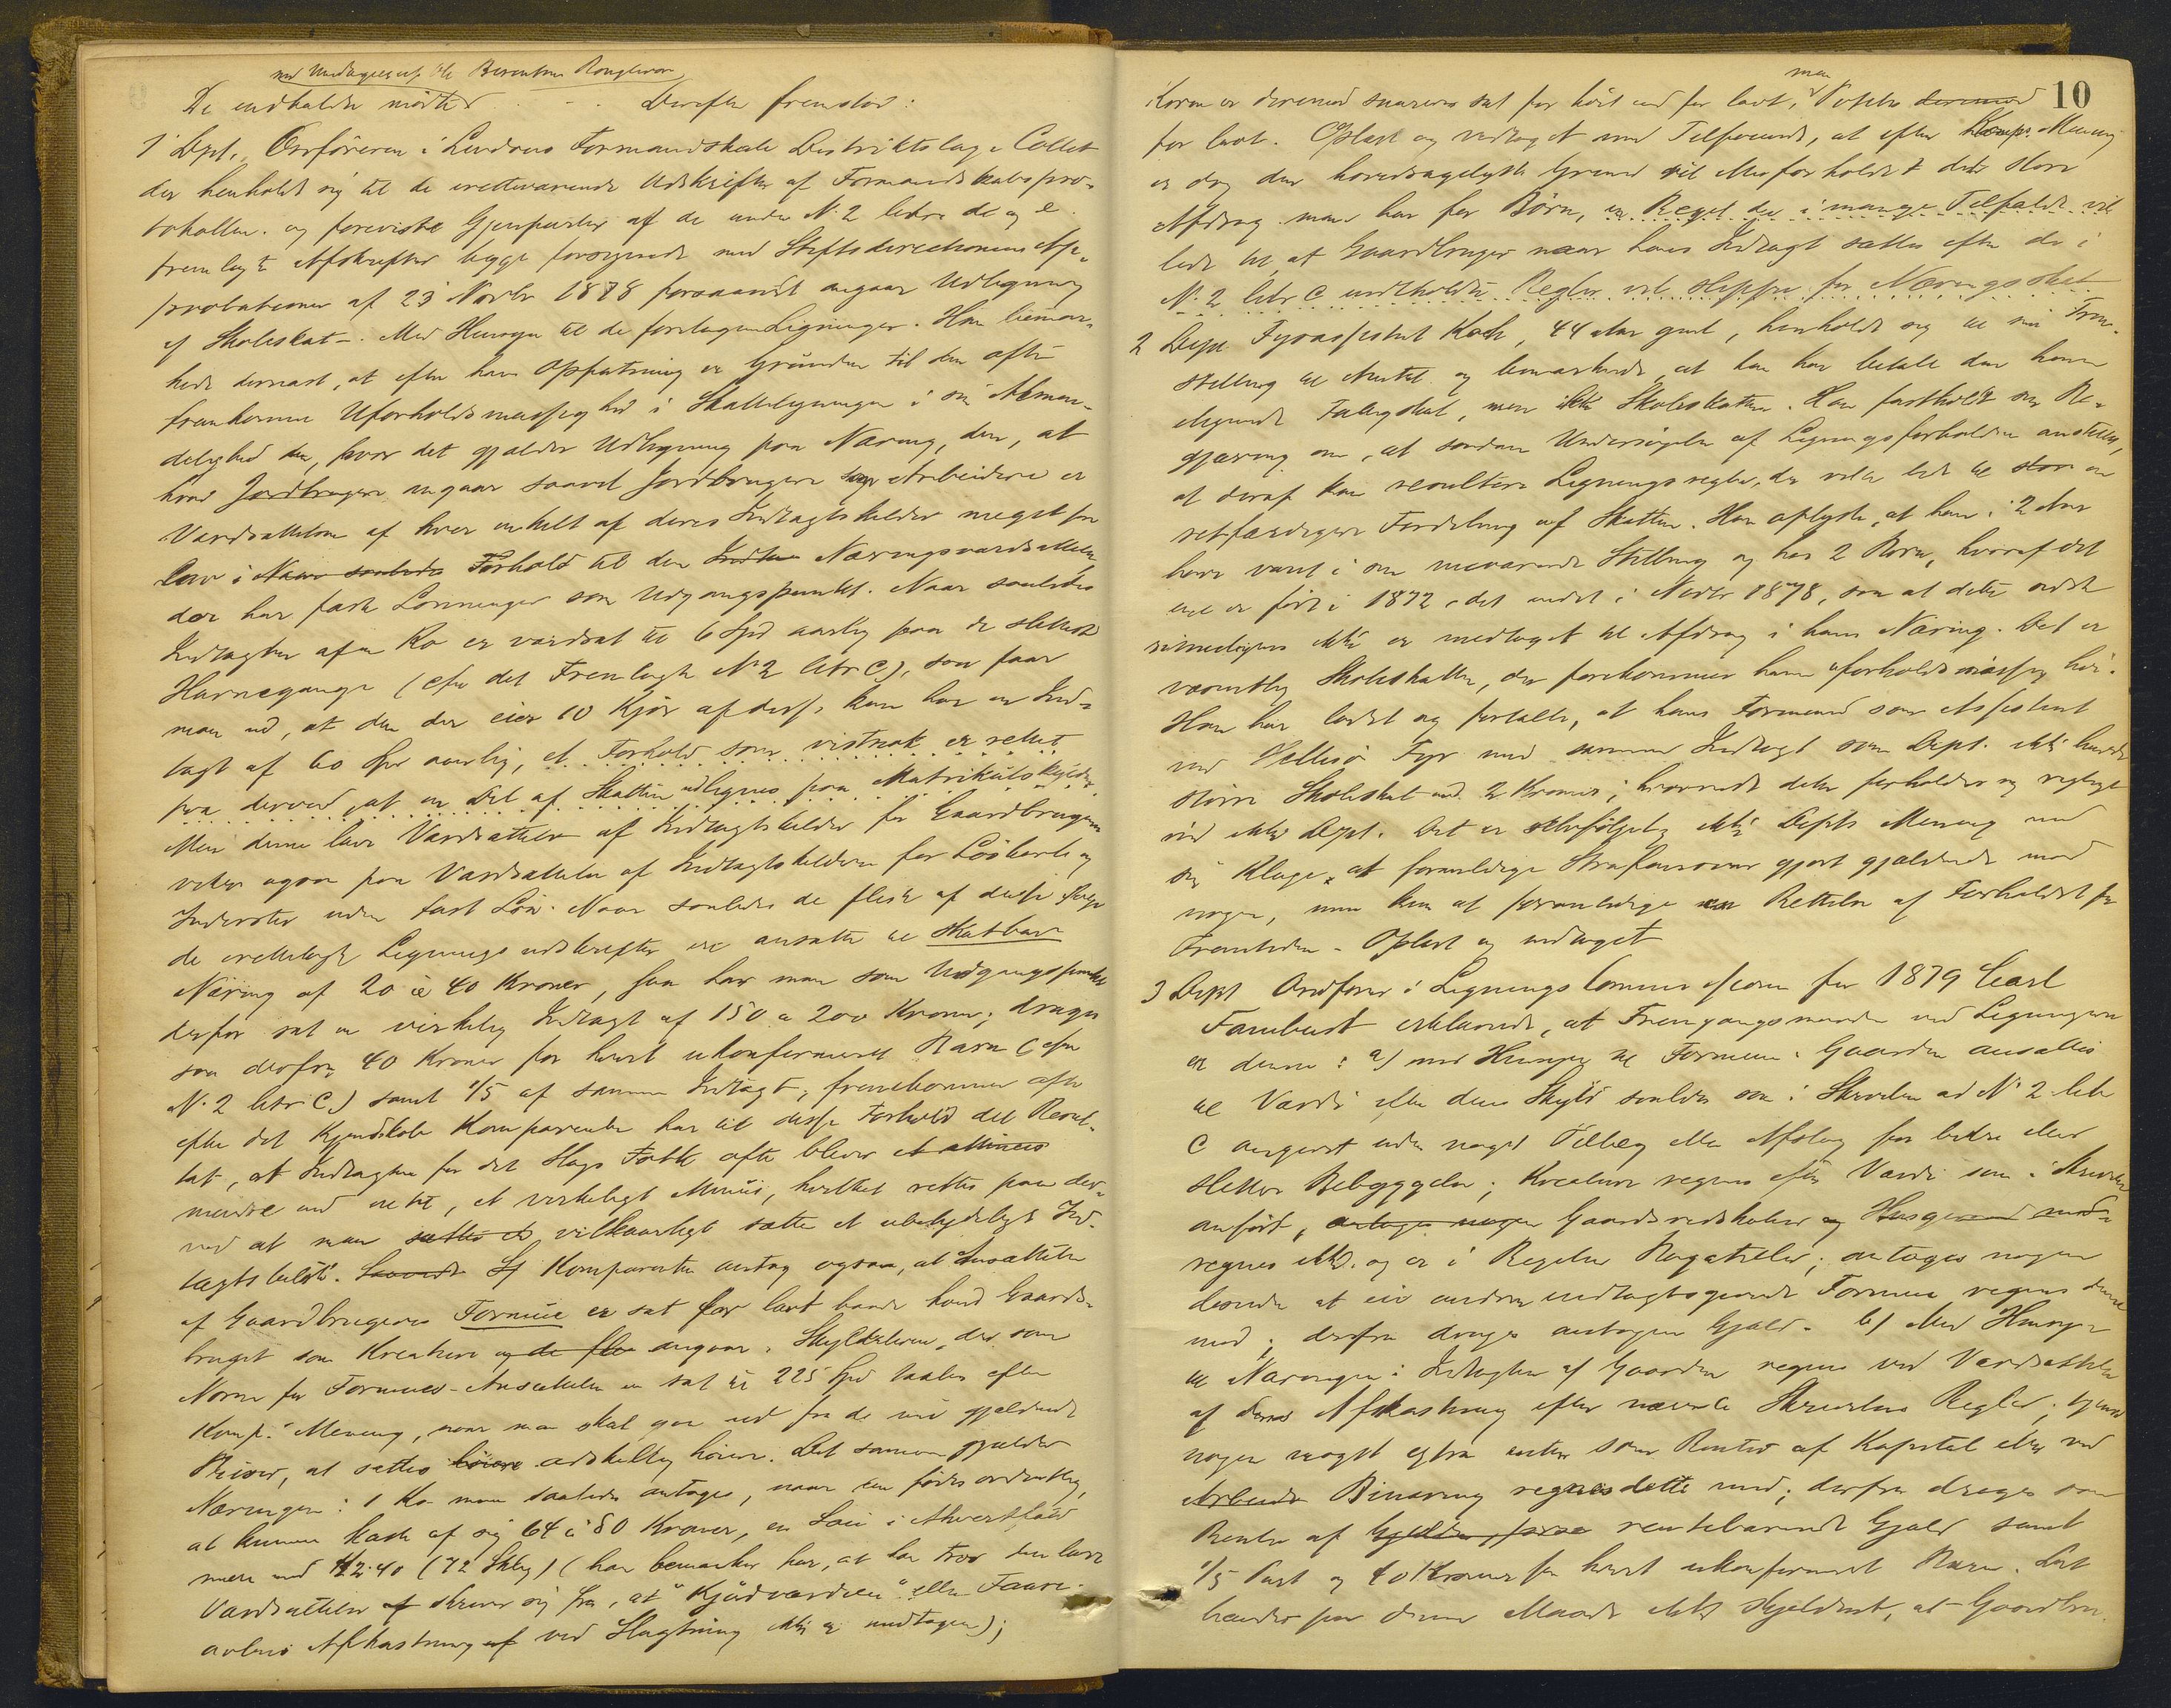 med Undtagelse af Ole Berentsen Rongevær
De indkaldte mødte . - . Derefter fremstod:
1 Dept. Ordføreren i Lindaas Formandskab Distriktslæge Collet
der henholdt sig til de iretteværende Udskrifter af Formandskabspro-
tokollen. og foreviste Gjenparter af de under N. 2 litra d og e
fremlagte Afskrifter begge forsynede med Stiftsdirectionens Ap-
probationer af 23 Novbr 1878 forsaavidt angaar Udligning
af Skoleskat -. Med Hensyn til de foretagne Ligninger. Han bemær-
kede dernæst, at efter hans Opfatning er Grunden til den ofte
fremkomne Uforholdsmæssighed i Skatteligningen i sin Almin-
delighed, hvor det gjælder Udligning paa Næring, den, at
hvad Jordbrugere angaar saavel Jordbrugere som Arbeidere er
Værdsættelsen af hver enkelt af deres Indtægtskilder meget for
lav i Forhold til den Næringsværdsættelse,
der har faste Lønninger som Udgangspunkt. Naar saaledes
Indtægten af en Ko er værdsat til 6 Spd aarlig paa de sletteste
Havnegange (cfr det Fremlagte N 2 litr C), saa faar
man ud, at den der eier 10 Kjør af disse kun har en Ind-
tægt af 60 Spd aarlig, et Forhold som vistnok er rettet
paa derved, at en Del af Skatten udlignes paa Matrikulskylden.
Men denne lave Værdsættelse af Indtægtskilder for Gaardbrugere
virker ogsaa paa Værdsættelse af Indtægtskilderne for Løskarle og
Inderster uden fast Løn. Naar saaledes de fleste af disse ifølge
de irettelagte Ligningsudskrifter ere ansatte til Skatbar
Næring af 20 à 40 Kroner, saa har man som Udgangspunkt
derfor sat en virkelig Indtægt af 150 a 200 Kroner; drages
saa derfra 40 Kroner for hvert ukonfirmeret Barn (cfr
N. 2 litr C) samt 1/5 af samme Indtægt, fremkommer ofte
efter det Kjendskab Komparenten har til disse Forhold det Resul-
tat, at Indtægten for det Slags Folk ofte bliver
mindre end intet, et virkeligt Minus, hvilket rettes paa der-
ved at man sættes vilkaarligt sætter et ubetydeligt Ind-
tægtsbeløb. Komparenten antog ogsaa, at Ansættelsen
af Gaardbrugeres Formue er sat for lavt baade hvad Gaards-
bruget som Kreaturer og de fler angaar. Skylddaleren, der som
Norm for Formues-Ansættelse er sat til 225 Spd burde efter
Komp.s Mening, naar man skal gaa ud fra de nu gjældende
Priser, at sættes høiere adskillig høiere. Det samme gjælder
Næringen: 1 Ko maa saaledes antages, naar den fødes ordentlig,
at kunne kaste af sig 64 à 80 Kroner, en Sau i Almindelighed
mere end 2.40 (72 Skilg) (han bemærker her, at han tror den lave
Værdsættelse skriver sig fra, at "Kjødværdien" eller Faare-
avlens Afkastning af ved Slagtning ikke er medtagen);
10
men
Korn er derimod snarere sat for høit end for lavt, Poteter derimod
for lavt. Oplæst og vedtaget med Tilføiende, at efter Komp.s Mening
er dog den hovedsageligste Grund til Misforholdet det store
Afdrag man har for Børn, en Regel der i mange Tilfælde vil
lede til, at Gaardbruger naar hans Indtægt sættes efter de i
N. 2 litr C indtholdte Regler vil slippe for Næringsskat
2 Dept Fyrassistent Koch, 44 Aar gml, henholdt sig til sin Frem-
stilling til Amtet og bemærkede, at han har betalt den ham
ilignede Fattigskat, men ikke Skoleskatten. Han fastholdt sin Be-
gjæring om, at saadan Undersøgelse af Ligningsforholdene anstilles,
at deraf kan resultere Ligningsregler, der ville lede til en
retfærdigere Fordeling af Skatten. Han oplyste, at han i 2 Aar
have været i sin nuværende Stilling og har 2 Børn, hvoraf det
ene er født i 1872, det andet i Novbr 1878, saa at dette sidste
rimeligvis ikke er medtaget til Afdrag i hans Næring. Det er
væsentlig Skoleskatten, der forekommer ham uforholdsmæssig høi.
Han har ladet sig fortælle, at hans Formand som Assistent
ved Hellisø Fyr med samme Indtægt som Dept. ikke havde
større Skoleskat end 2 Kroner; hvorvidt dette forholder sig rigtigt
ved ikke Dept. Det er selvfølgelig ikke Depts Mening med
sin Klage, at foranledige Strafansvar gjort gjældende mod
nogen, men kun at foranledige en Rettelse af Forholdet for
Fremtiden - Oplæst og vedtaget
3 Dept Ordfører i Ligningscommissionen for 1879 Carl
Farebust erklærede, at Fremgangsmaaden ved Ligningen
er denne: a) med Hensyn til Formue: Gaarden ansættes
til Værdi efter dens Skyld saaledes som i Skrivelsen ad N 2 litr
C angivet uden noget Tillæg eller Afslag for bedre eller
slettere Bebyggelse; Kreaturer regnes efter Værdi som i Skrivelsen
anført, antages nogen Gaardsredskaber og Husgeraad med-
regnes ikke og er i Regelen Bagateller; antages nogen
desuden at eie anden indtægtsgivende Formue regnes denne
med; derfra drages antagen Gjæld. b) Med Hensyn
til Næringen: Indtægten af Gaarden regnes ved Værdsættelse
af dens Afkastning efter nævnte Skrivelses Regler; tjener
nogen noget extra enten som Renter af Kapital eller ved
Arbeide Binæring regnes dette med; derfra drages som
Renter af rentebærende Gjæld samt
1/5 Part og 40 Kroner for hvert ukonfirmeret Barn. Det
hænder paa denne Maade ikke sjeldent, at Gaardbru-